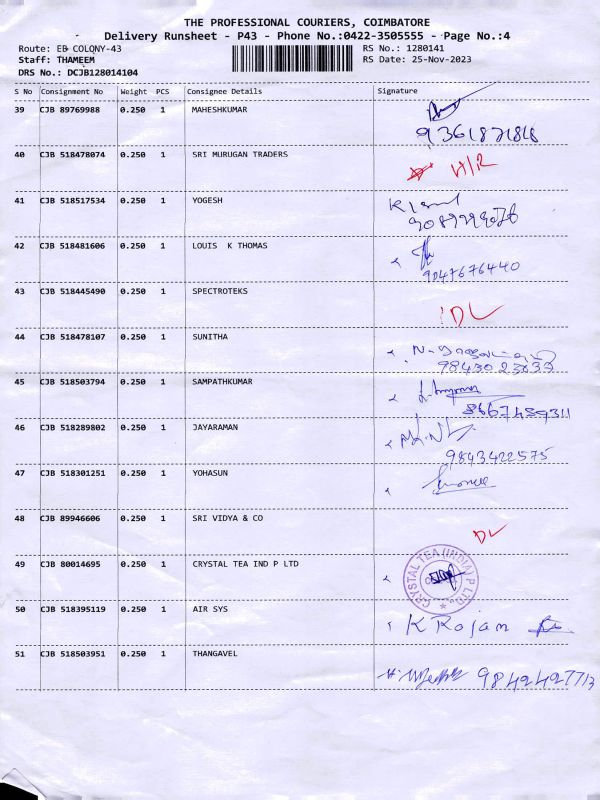 THE PROFESSIONAL COURIERS, COIMBATORE
Delivery Runsheet - P43 - Phone No.:0422-3505555 - Page No.:4
Route: EB COLONY-43 RS No.: 1280141
Staff: THAMEEM RS Date: 25-Nov-2023
DRS No.: DCJB128014104
S No Consignment No Weight PCS Consignee Details Signature
39 CJB 89769988 0.250 1 MAHESHKUMAR
9361871818
40 CJB 518478074 0.250 1 SRI MURUGAN TRADERS
41 CJB 518517534 0.250 1 YOGESH
42 CJB 518481606 0.250 1 LOUIS K THOMAS
9047676440
43 CJB 518445490 0.250 1 SPECTROTEKS
DL
44 CJB 518478107 0.250 1 SUNITHA
45 CJB 518503794 0.250 1 SAMPATHKUMAR
8667489311
46 CJB 518289802 0.250 1 JAYARAMAN
9843422575
47 CJB 518301251 0.250 1 YOHASUN
48 CJB 89946606 0.250 1 SRI VIDYA & CO
DL
49 CJB 80014695 0.250 1 CRYSTAL TEA IND P LTD
CRYSTAL TEA (INDIA) P LTD.
50 CJB 518395119 0.250 1 AIR SYS
K Rojan
51 CJB 518503951 0.250 1 THANGAVEL
9842427713